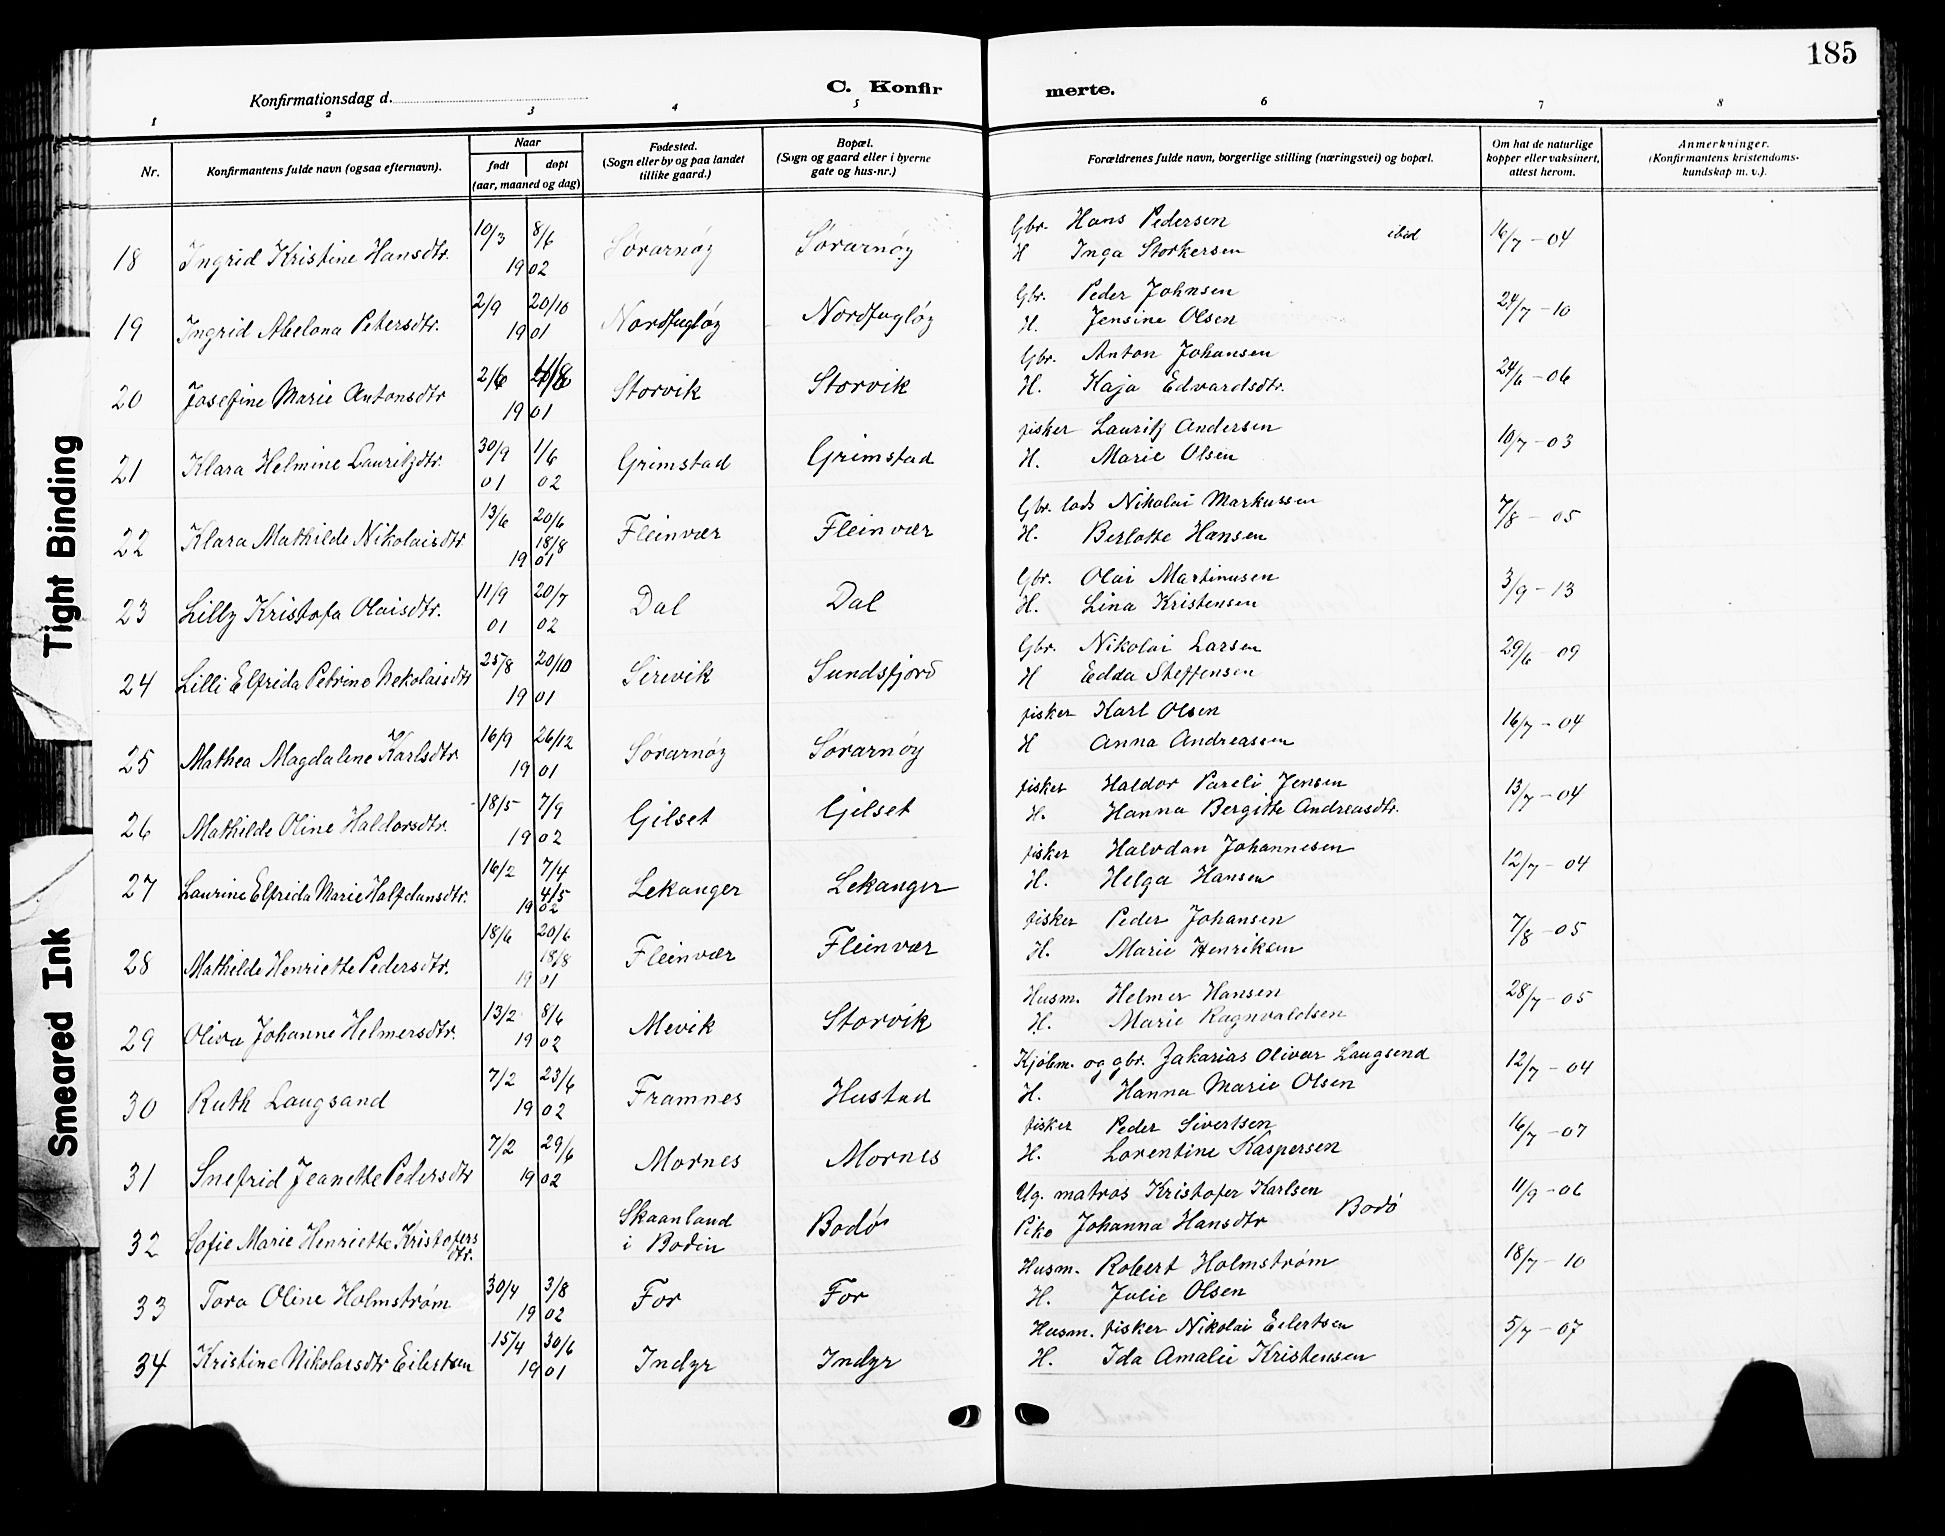 185
Konfirmationsdag d.
C. Konfir
merte.
1 2 3 4 5 6 7 8
Nr.
Konfirmantens fulde navn (ogsaa efternavn).
Naar
født
døpt
(aar, maaned og dag)
Fødested.
(Sogn eller by og paa landet
tillike gaard.)
Bopæl.
(Sogn og gaard eller i byerne
gate og hus-nr.)
Forældrenes fulde navn, borgerlige stilling (næringsvei) og bopæl.
Om hat de naturlige
kopper eller vaksinert,
attest herom.
Anmerkninger.
(Konfirmantens kristendoms-
kundskap m. v.).
18 Ingrid Kristine Hansdtr. 10/3 8/6 1902 Sørarnøy Sørarnøy Gbr. Hans Pedersen ibid 16/7-04
H Inga Storkersen
19 Ingrid Abelona Petersdtr. 2/9 20/10 1901 Nordfugløy Nordfugløy Gbr. Peder Johnsen 24/7-10
H. Jensine Olsen
20 Josefine Marie Antonsdtr 2/6 1901 Storvik Storvik Gbr. Anton Johansen 24/6-06
H. Kaja Edvardsdtr.
21 Klara Helmine Lauritzdtr. 30/9 01 1/6 02 Grimstad Grimstad fisker Lauritz Andersen 10/7-03
H. Marie Olsen
22 Klara Mathilde Nikolaisdtr 13/6 20/6 18/8 1901 Fleinvær Fleinvær Gbr. lods Nikolai Markussen 7/8-05
H. Berlotte Hansen
23 Lilly Kristofa Olaisdtr. 11/9 01 20/7 02 Dal Dal Gbr. Olai Martinusen 3/9-13
H. Lina Kristensen
24 Lilli Elfrida Petrine Nekolaisdtr 25/8 20/10 1901 Sirevik Sundsfjord Gbr. Nikolai Larsen 29/6-09
H Edda Steffensen
25 Mathea Magdalene Karlsdtr 16/9 26/12 1901 Sørarnøy Sørarnøy fisker Karl Olsen 16/7-04
H Anna Andreassen
26 Mathilde Oline Haldorsdtr. 18/5 7/9 1902 Gilset Gilset fisker Haldor Pareli Jensen 13/7-04
H. Hanna Bergitte Andreasdtr.
27 Laurine Elfrida Marie Halfdansdtr. 16/2 7/4 4/5 1902 Lekanger Lekanger fisker Halvdan Johannesen 12/7-04
H. Helga Hansen
28 Mathilde Henriette Pedersdtr. 18/6 20/6 18/8 1901 Fleinvær Fleinvær fisker Peder Johansen 7/8-05
H. Marie Henriksen
29 Oliva Johanne Helmersdtr. 13/2 8/6 1902 Mevik Storvik Husm. Helmer Hansen 28/7-05
H. Marie Ragnvaldsen
30 Ruth Laugsand 7/2 23/6 1902 Framnes Hustad Kjøbm. og gbr. Zakarias Olivar Laugsend 12/7-04
H. Hanna Marie Olsen
31 Snefrid Jeanette Pedersdtr 7/2 29/6 1902 Mornes Mornes fisker Peder Sivertsen 16/7-07
H. Lorentine Kaspersen
32 Sofie Marie Henriette Kristofers
dtr. Skaanland
i Bodin Bodø Ug. matros Kristofer Karlsen 11/9-06
Pike Johanna Hansdtr Bodø
33 Tora Oline Holmstrøm 30/4 3/8 1902 For For Husm. Robert Holmstrøm 18/7-10
H. Julie Olsen
34 Kristine Nikolaisdtr Eilertsen 15/4 30/6 1901 Indyr Indyr Husm. fisker Nikolai Eilertsen 5/7-07
H. Ida Amalie Kristensen
Tight Binding
Smeared Ink